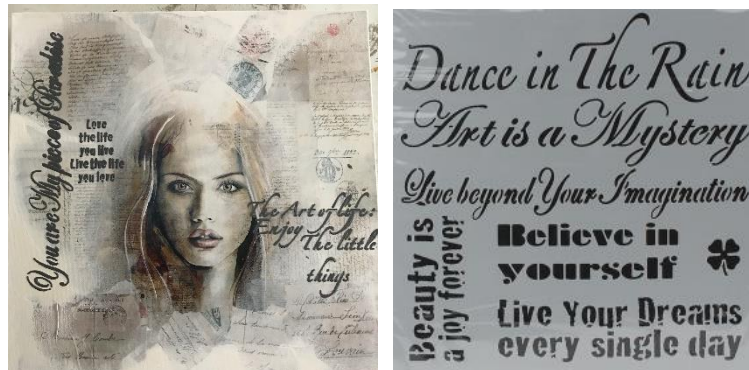 You are My piece of Paradise
Love
the life
you live
Live the life
you love
The Art of life:
Enjoy The little
things
Dance in The Rain
Art is a Mystery
Live beyond Your Imagination
Beauty is
a joy forever
Believe in
yourself
Live Your Dreams
every single day